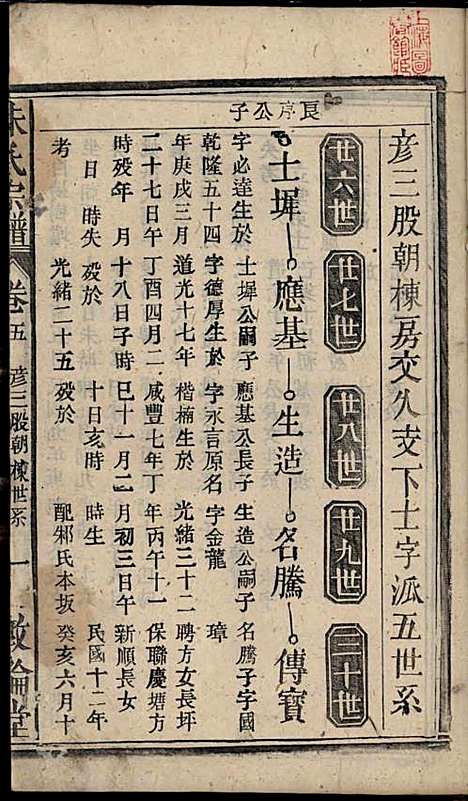 彦三股朝棟房交久支下士字派五世系
廿六世 廿七世 廿八世 廿九世 三十世
良序公子
士墀 應基 生造 名騰 傳寶
字必達生於 士墀公嗣子 應基公長子 生造公嗣子 名騰子字國
乾隆五十四 字德厚生於 字永言原名 字金龍 璋
年庚戌三月 道光十七年 楷楠生於 光緒三十二 聘方女長坪
二十七日午 丁酉四月二 咸豐七年丁 年丙午十一 保聯慶塘方
時殁年 月 十八日子時 巳十一月二 月初三日午 新順長女
日 時失 殁於 十日亥時 時生 民國十二年
考 光緒二十五 殁於 配邾氏本坂 癸亥六月十
朱氏宗譜 卷五 彦三股朝棟世系 一 敦倫堂